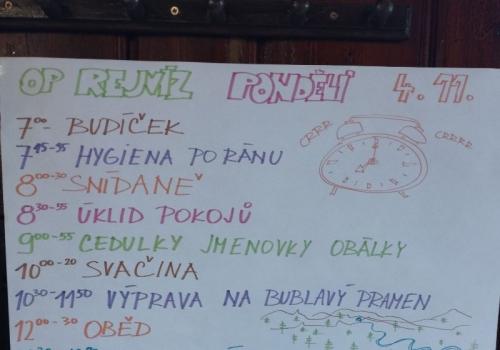 OP REJVÍZ PONDĚLÍ 4. 11.
7⁰⁰- BUDÍČEK
CRRR
CRRRR
7⁴⁵⁻⁵⁵ HYGIENA PO RÁNU
8⁰⁰⁻³⁰ SNÍDANĚ
8³⁰⁻⁵⁵ ÚKLID POKOJŮ
9⁰⁰⁻⁵⁵ CEDULKY JMENOVKY OBÁLKY
10⁰⁰⁻²⁰ SVAČINA
10³⁰-11⁵⁰ VÝPRAVA NA BUBLAVÝ PRAMEN
12⁰⁰⁻³⁰ OBĚD